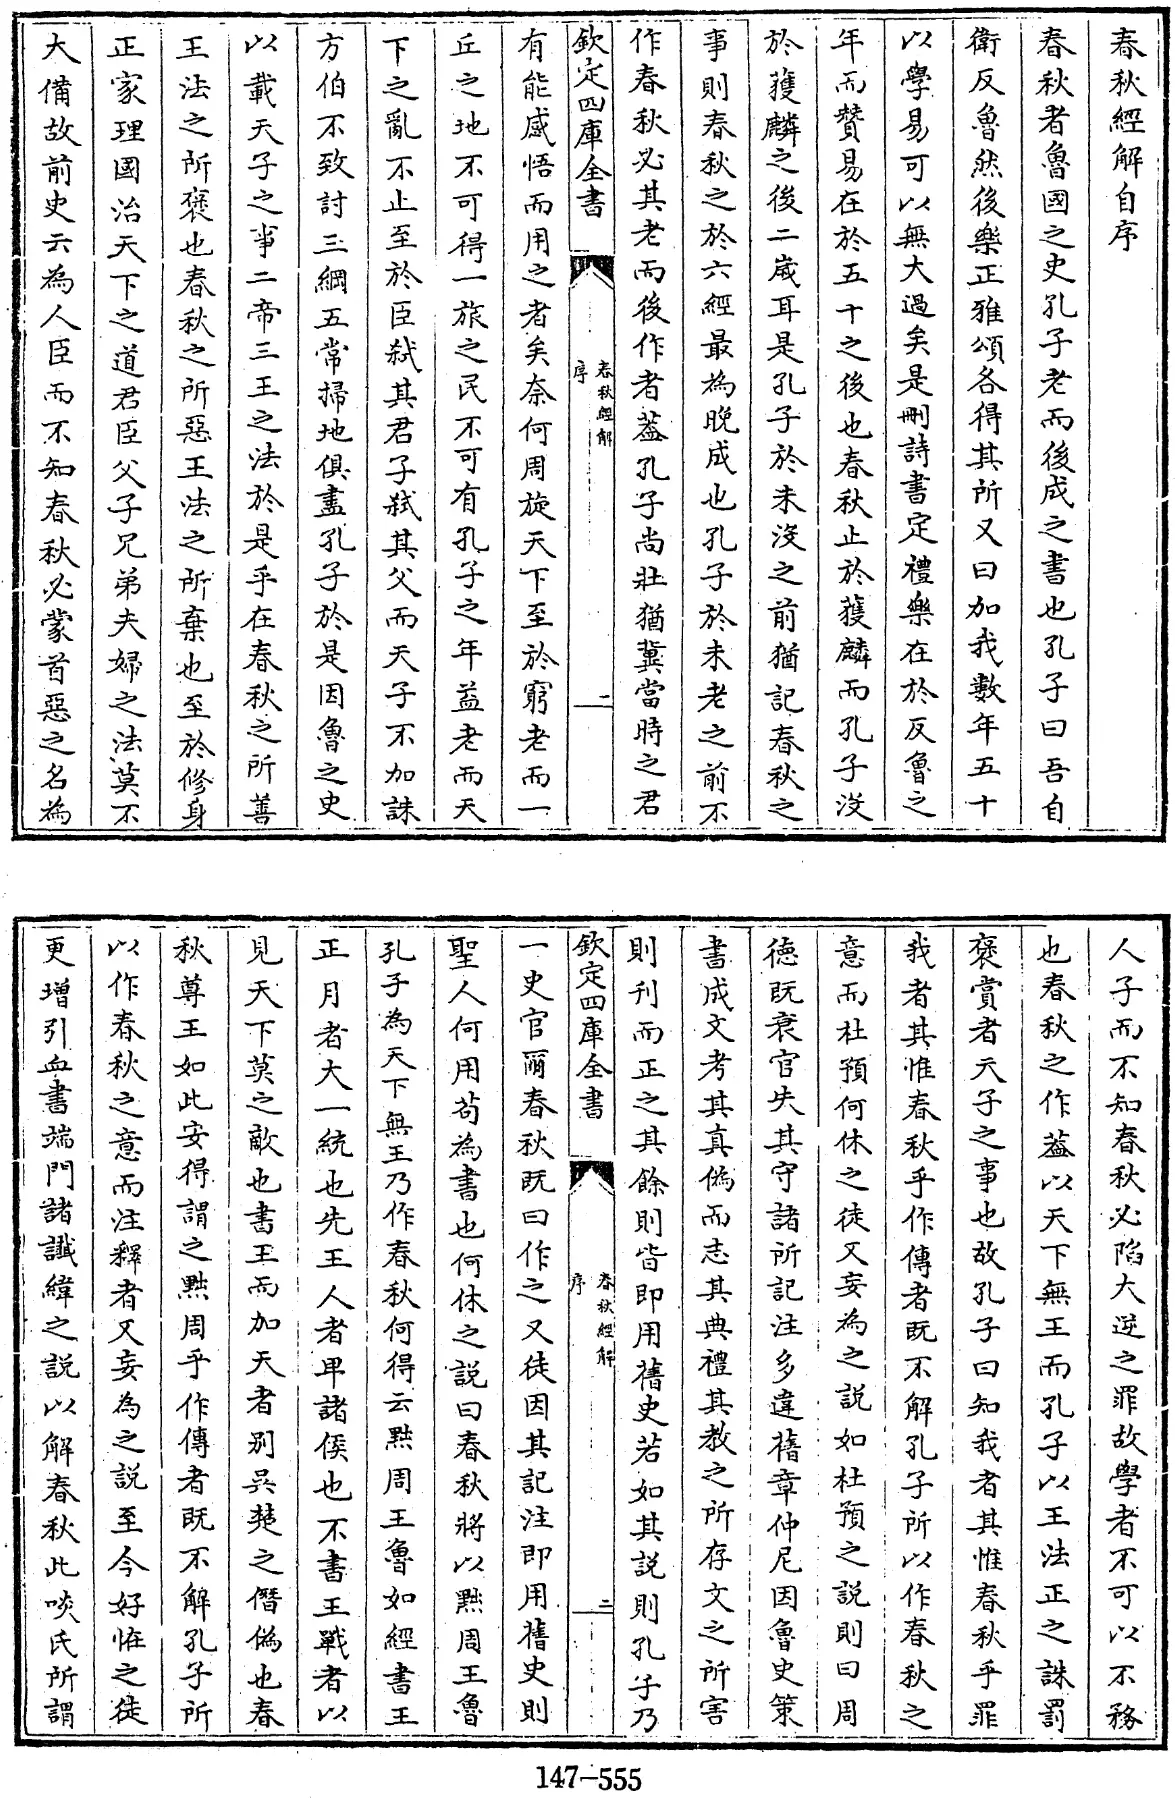 春秋經解自序
春秋者魯國之史孔子老而後成之書也孔子曰吾自
衛反魯然後樂正雅頌各得其所又曰加我數年五十
以學易可以無大過矣是刪詩書定禮樂在於反魯之
年而贊易在於五十之後也春秋止於獲麟而孔子沒
於獲麟之後二歲耳是孔子於未沒之前猶記春秋之
事則春秋之於六經最為晚成也孔子於未老之前不
作春秋必其老而後作者葢孔子尚壯猶冀當時之君
欽定四庫全書
春秋經解
序
二
有能感悟而用之者矣奈何周旋天下至於窮老而一
丘之地不可得一旅之民不可有孔子之年益老而天
下之亂不止至於臣弑其君子弑其父而天子不加誅
方伯不致討三綱五常掃地俱盡孔子於是因魯之史
以載天子之事二帝三王之法於是乎在春秋之所善
王法之所褒也春秋之所惡王法之所棄也至於修身
正家理國治天下之道君臣父子兄弟夫婦之法莫不
大備故前史云為人臣而不知春秋必蒙首惡之名為
人子而不知春秋必陷大逆之罪故學者不可以不務
也春秋之作葢以天下無王而孔子以王法正之誅罰
褒賞者天子之事也故孔子曰知我者其惟春秋乎罪
我者其惟春秋乎作傳者既不解孔子所以作春秋之
意而杜預何休之徒又妄為之說如杜預之說則曰周
德既衰官失其守諸所記注多違舊章仲尼因魯史策
書成文考其真偽而志其典禮其教之所存文之所害
則刊而正之其餘則皆即用舊史若如其說則孔子乃
欽定四庫全書
春秋經解
序
三
一史官爾春秋既曰作之又徒因其記注即用舊史則
聖人何用苟為書也何休之說曰春秋將以黜周王魯
孔子為天下無王乃作春秋何得云黜周王魯如經書王
正月者大一統也先王人者卑諸侯也不書王戰者以
見天下莫之敵也書王而加天者別吳楚之僭偽也春
秋尊王如此安得謂之黜周乎作傳者既不解孔子所
以作春秋之意而注釋者又妄為之說至今好怪之徒
更增引血書端門諸讖緯之說以解春秋此啖氏所謂
147-555